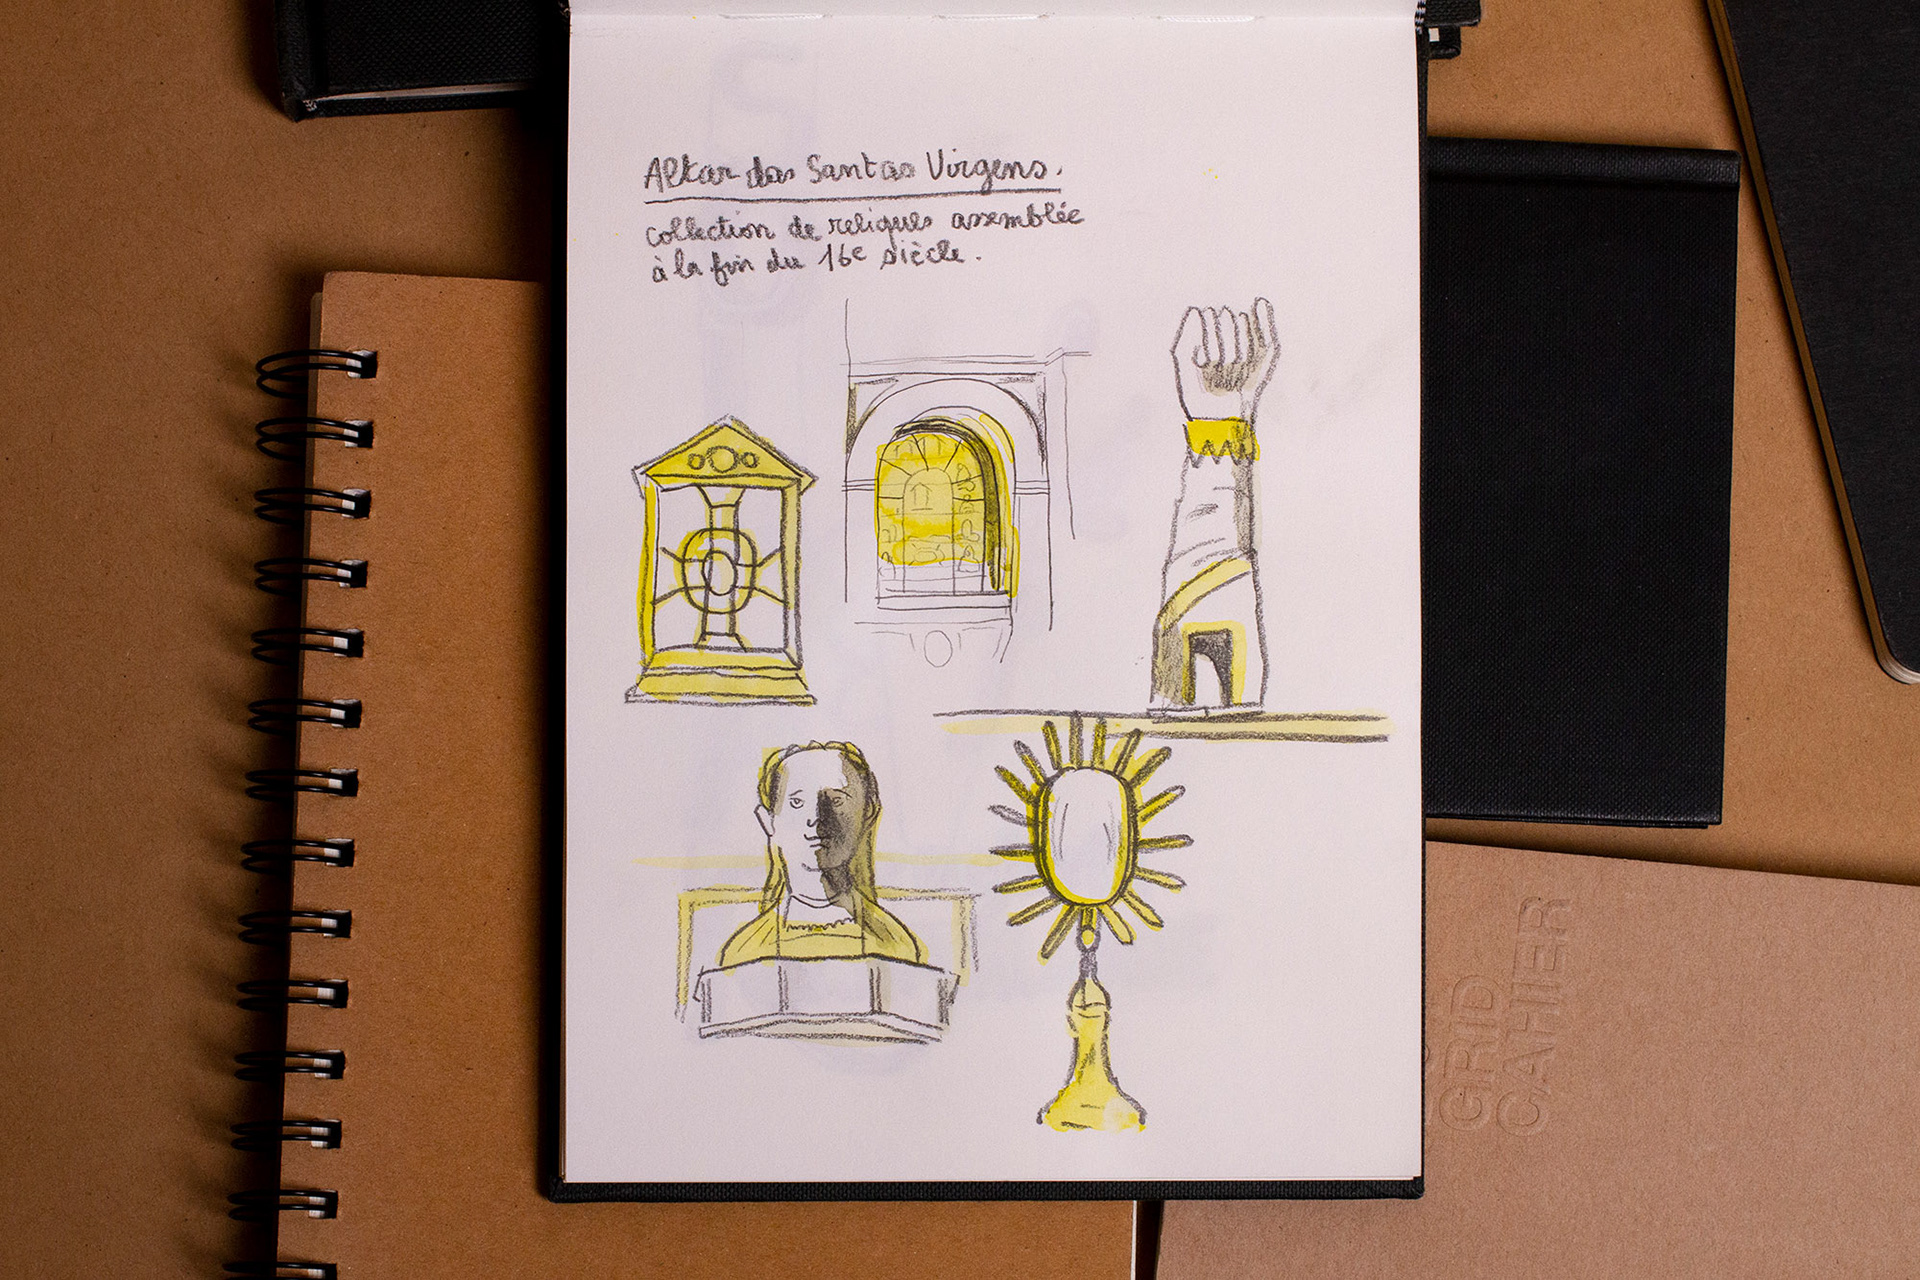 Altar das Santas Virgens.
collection de reliques assemblée
à la fin du 16e siècle.
GRID
CAHIER